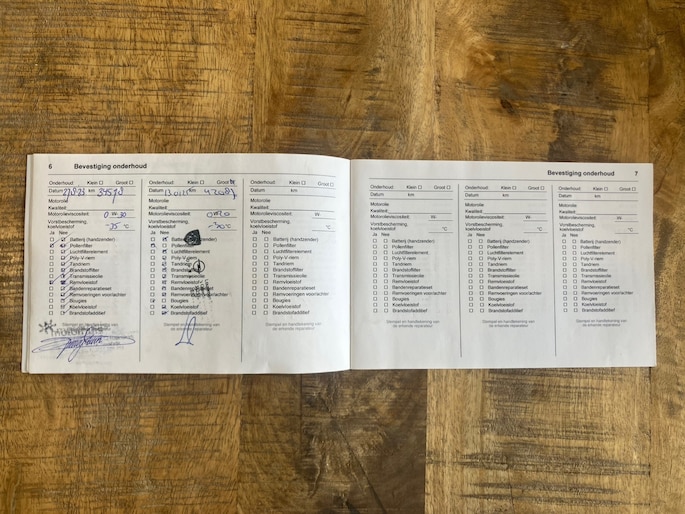 6 Bevestiging onderhoud
Onderhoud: Klein Groot
Datum km
Motorolie
Kwaliteit:
Motorolieviscositeit: 0 W-30
Vorstbescherming,
koelvloeistof -35 °C
Ja Nee
Batterij (handzender)
Pollenfilter
Luchtfilterelement
Poly-V-riem
Tandriem
Brandstoffilter
Transmissieolie
Remvloeistof
Bandenreparatieset
Remvoeringen voor/achter
Bougies
Koelvloeistof
Brandstofadditief
Stempel en handtekening van
Onderhoud: Klein Groot
Datum km
Motorolie
Kwaliteit:
Motorolieviscositeit:
Vorstbescherming,
koelvloeistof °C
Ja Nee
Batterij (handzender)
Pollenfilter
Luchtfilterelement
Poly-V-riem
Tandriem
Brandstoffilter
Transmissieolie
Remvloeistof
Bandenreparatieset
Remvoeringen voor/achter
Bougies
Koelvloeistof
Brandstofadditief
Stempel en handtekening van
Onderhoud: Klein Groot
Datum km
Motorolie
Kwaliteit:
Motorolieviscositeit: W-
Vorstbescherming,
koelvloeistof °C
Ja Nee
Batterij (handzender)
Pollenfilter
Luchtfilterelement
Poly-V-riem
Tandriem
Brandstoffilter
Transmissieolie
Remvloeistof
Bandenreparatieset
Remvoeringen voor/achter
Bougies
Koelvloeistof
Brandstofadditief
Stempel en handtekening van
de erkende reparateur
Bevestiging onderhoud 7
Onderhoud: Klein Groot
Datum km
Motorolie
Kwaliteit:
Motorolieviscositeit: W-
Vorstbescherming,
koelvloeistof °C
Ja Nee
Batterij (handzender)
Pollenfilter
Luchtfilterelement
Poly-V-riem
Tandriem
Brandstoffilter
Transmissieolie
Remvloeistof
Bandenreparatieset
Remvoeringen voor/achter
Bougies
Koelvloeistof
Brandstofadditief
Stempel en handtekening van
de erkende reparateur
Onderhoud: Klein Groot
Datum km
Motorolie
Kwaliteit:
Motorolieviscositeit: W-
Vorstbescherming,
koelvloeistof °C
Ja Nee
Batterij (handzender)
Pollenfilter
Luchtfilterelement
Poly-V-riem
Tandriem
Brandstoffilter
Transmissieolie
Remvloeistof
Bandenreparatieset
Remvoeringen voor/achter
Bougies
Koelvloeistof
Brandstofadditief
Stempel en handtekening van
de erkende reparateur
Onderhoud: Klein Groot
Datum km
Motorolie
Kwaliteit:
Motorolieviscositeit: W-
Vorstbescherming,
koelvloeistof °C
Ja Nee
Batterij (handzender)
Pollenfilter
Luchtfilterelement
Poly-V-riem
Tandriem
Brandstoffilter
Transmissieolie
Remvloeistof
Bandenreparatieset
Remvoeringen voor/achter
Bougies
Koelvloeistof
Brandstofadditief
Stempel en handtekening van
de erkende reparateur